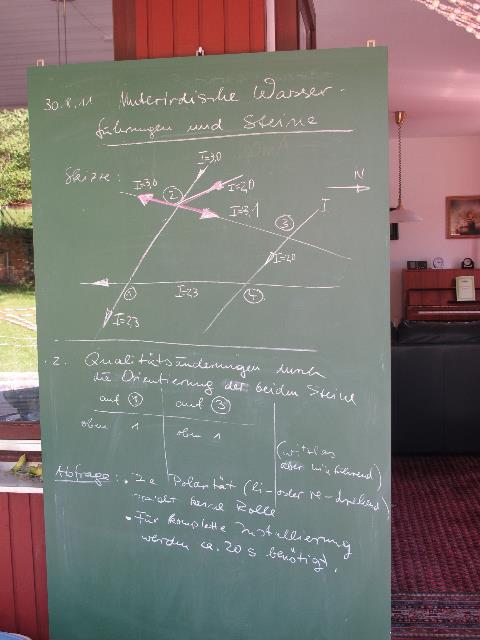 30.8.11 Unterirdische Wasser-
führungen und Steine
Skizze:
I=3,0
I=3,0
2
I=2,0
I=3,1
N
3
I
I=2,0
1
I=2,3
4
I=2,3
2. Qualitätsänderungen durch
die Orientierung der beiden Steine
auf 1 auf 3
oben 1
oben 1
Abfrage:
Polarität (li- oder re-drehend)
spielt keine Rolle
• Für komplette Installierung
werden ca. 20 s benötigt.